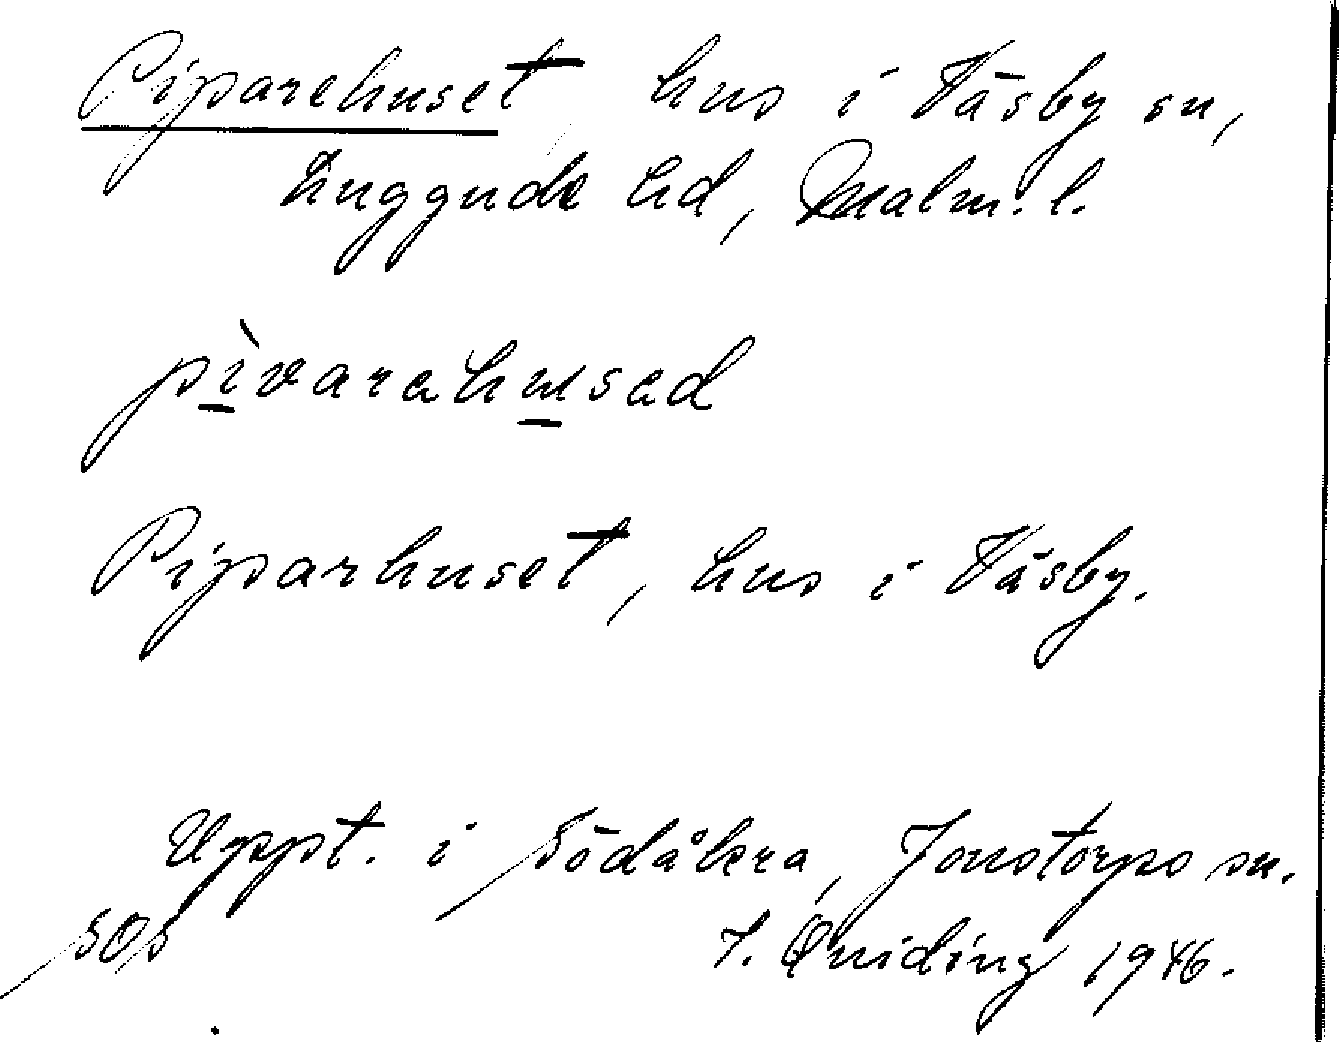 Piparehuset, hus i Väsby sn,
Luggude hd, Malm. l.
pìvarahusad
Piparhuset, hus i Väsby.
Uppt. i Södåkra, Jonstorps sn.
SOS J. Qviding 1946.